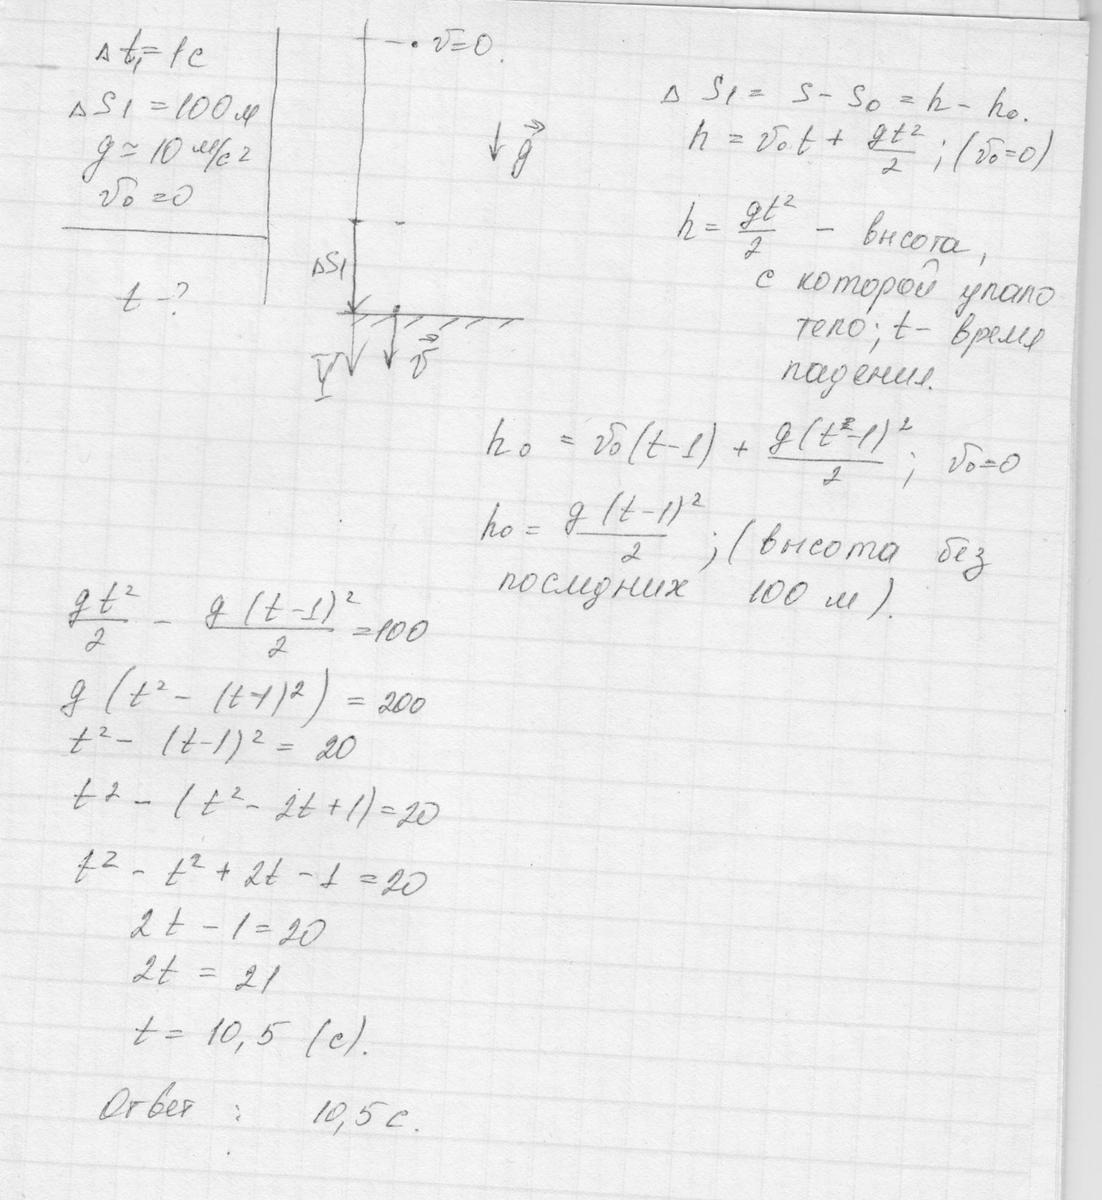 Δt₁ = 1 с
ΔS1 = 100 м
g ≃ 10 м/с²
v₀ = 0
t - ?
v = 0
g
ΔS1
Y
v
ΔS1 = S - S₀ = h - h₀.
h = v₀t + gt²/2 ; (v₀=0)
h = gt²/2 - высота,
с которой упало
тело; t - время
падения.
h₀ = v₀(t-1) + g(t-1)²/2 ; v₀=0
h₀ = g(t-1)²/2 ; (высота без
последних 100 м).
gt²/2 - g(t-1)²/2 = 100
g(t² - (t-1)²) = 200
t² - (t-1)² = 20
t² - (t² - 2t + 1) = 20
t² - t² + 2t - 1 = 20
2t - 1 = 20
2t = 21
t = 10,5 (с).
Ответ : 10,5 с.